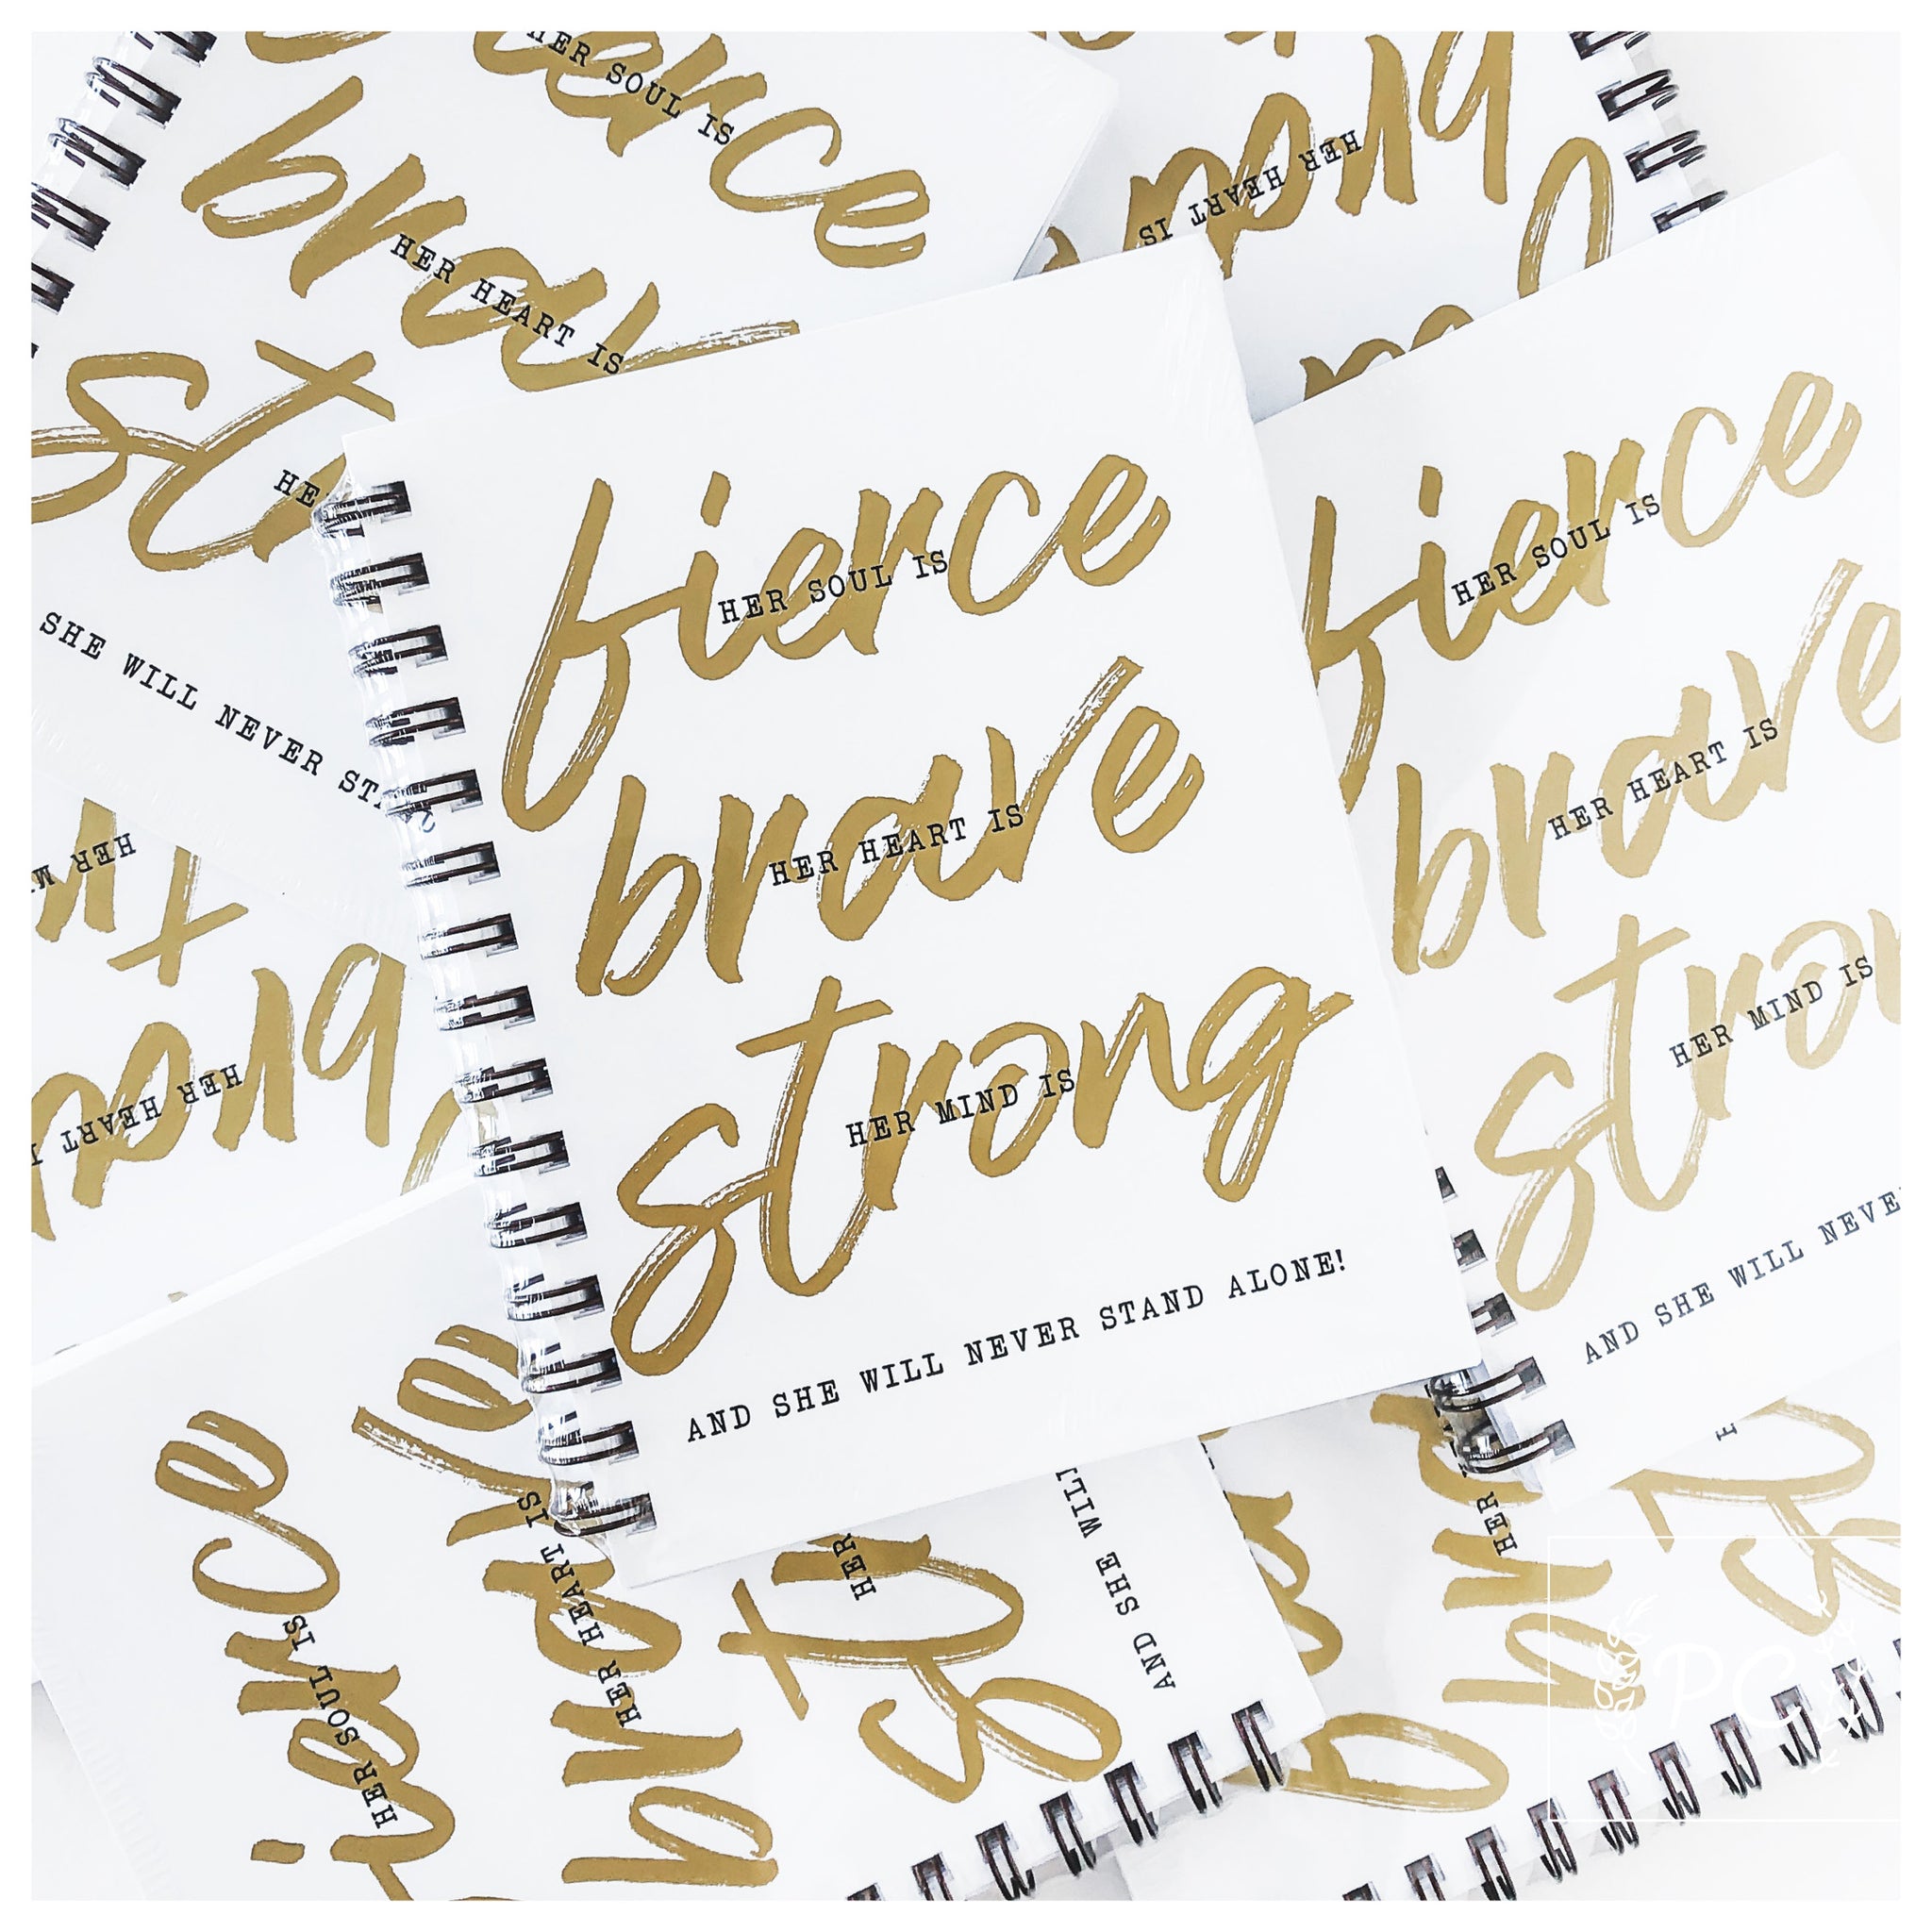 HER SOUL IS
fierce
HER HEART IS
brave
HER MIND IS
strong
AND SHE WILL NEVER STAND ALONE!
HER SOUL IS
fierce
HER HEART IS
brave
HER MIND IS
AND SHE WILL
HER SOUL IS
HER HEART IS
SHE WILL NEVER
HER HEART IS
HER
HER HEART
HER SOUL IS
HER HEART IS
HER
AND SHE
HER
PC